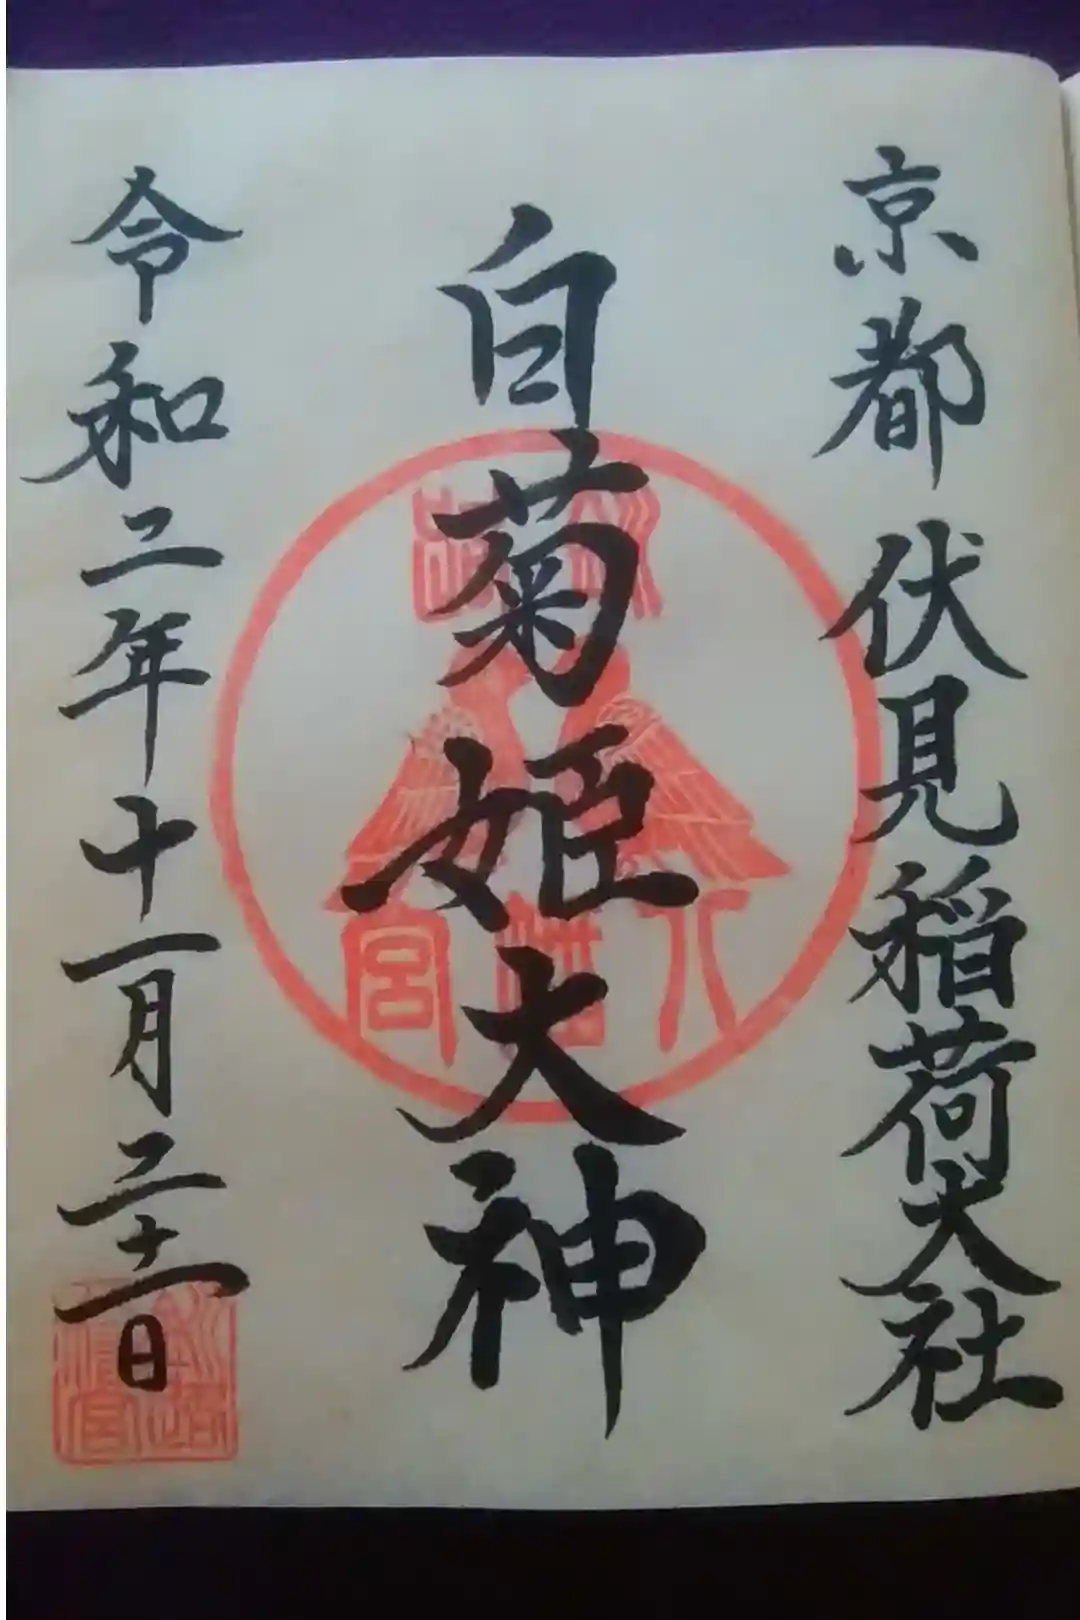 京都 伏見稲荷大社
白菊姫大神
八幡宮
令和二年十一月二十一日